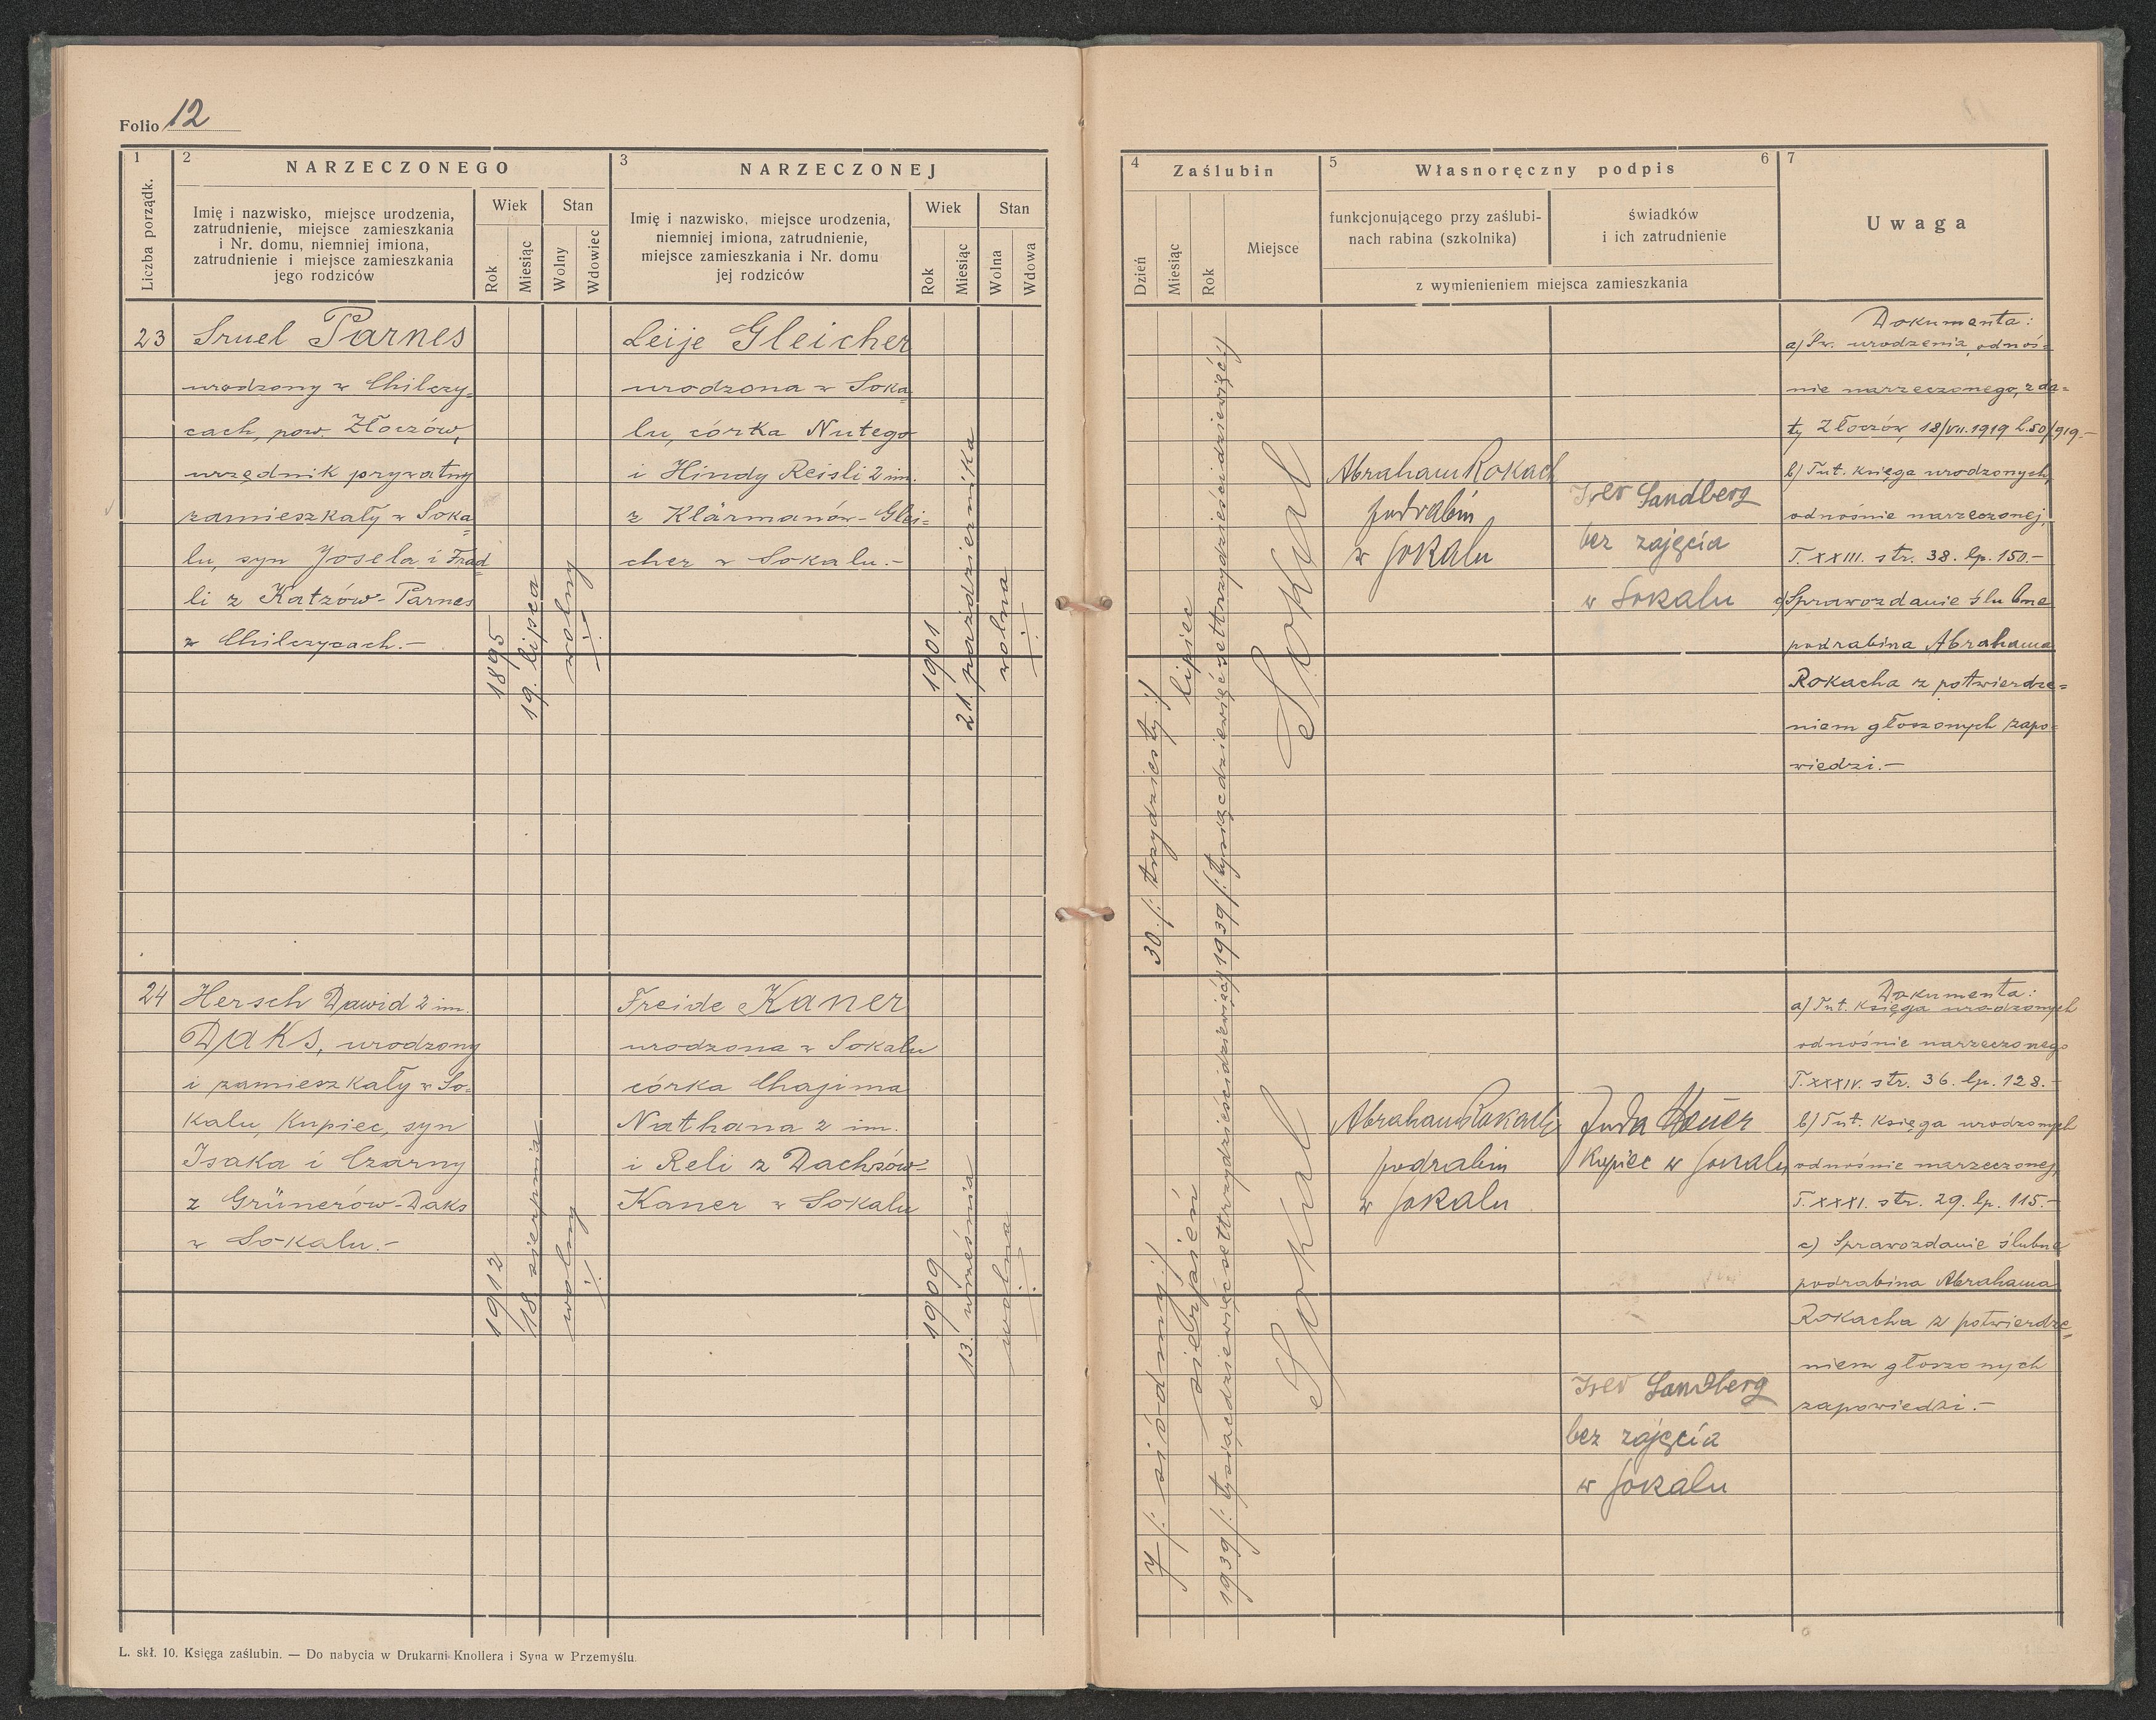 Folio 12
1
2 NARZECZONEGO
3 NARZECZONEJ
Liczba porządk.
Imię i nazwisko, miejsce urodzenia,
zatrudnienie, miejsce zamieszkania
i Nr. domu, niemniej imiona,
zatrudnienie i miejsce zamieszkania
jego rodziców
Wiek
Stan
Rok
Miesiąc
Wolny
Wdowiec
Imię i nazwisko, miejsce urodzenia,
niemniej imiona, zatrudnienie,
miejsce zamieszkania i Nr. domu
jej rodziców
Wiek
Stan
Rok
Miesiąc
Wolna
Wdowa
23
Sruel Parnes
urodzony w Chilczy-
cach, pow. Złoczów,
urzędnik prywatny
zamieszkały w Soka-
lu, syn Josela i Frad-
li z Katzów-Parnes
w Chilczycach.-
1895
19. lipca
wolny
Leije Gleicher
urodzona w Soka-
lu, córka Nutego
i Hindy Reisli 2 im.
z Klärmanów-Glei-
cher w Sokalu.-
1901
21 października
wolna
24
Hersch Dawid 2 im.
DAKS, urodzony
i zamieszkały w So-
kalu, kupiec, syn
Isaka i Czarny
z Grünerów-Daks
w Sokalu.-
1912
18 sierpnia
wolny
Freide Kaner
urodzona w Sokalu
córka Chajima
Nathana 2 im.
i Reli z Dachsów-
Kaner w Sokalu
1909
13. września
wolna
L. skł. 10. Księga zaślubin. — Do nabycia w Drukarni Knollera i Syna w Przemyślu.
4 Zaślubin
5 Własnoręczny podpis 6
7
Dzień
Miesiąc
Rok
Miejsce
funkcjonującego przy zaślubi-
nach rabina (szkolnika)
świadków
i ich zatrudnienie
z wymienieniem miejsca zamieszkania
Uwaga
30 /: trzydziesty :/
lipiec
1939 /: tysiącdziewięćsettrzydzieścidziewięć :/
Sokal
Abraham Rokach
podrabin
w Sokalu
Sandberg
bez zajęcia
w Sokalu
Dokumenta:
a) Św. urodzenia odnoś-
nie narzeczonego, z da-
ty Złoczów, 18/VII.1919 L.50/919.-
b) Tut. księga urodzonych,
odnośnie narzeczonej,
T. XXIII. str. 38. lp. 150.-
c) Sprawozdanie ślubne
podrabina Abrahama
Rokacha z potwierdze-
niem głoszonych zapo-
wiedzi.-
7 /: siódmy :/
sierpień
1939 /: tysiącdziewięćsettrzydzieścidziewięć :/
Sokal
Abraham Rokach
podrabin
w Sokalu
Juda
kupiec w Sokalu
Sandberg
bez zajęcia
w Sokalu
Dokumenta:
a) Tut. księga urodzonych
odnośnie narzeczonego
T. XXXIV. str. 36. lp. 128.-
b) Tut. księga urodzonych
odnośnie narzeczonej,
T. XXXI. str. 29. lp. 115.-
c) Sprawozdanie ślubne
podrabina Abrahama
Rokacha z potwierdze-
niem głoszonych
zapowiedzi.-